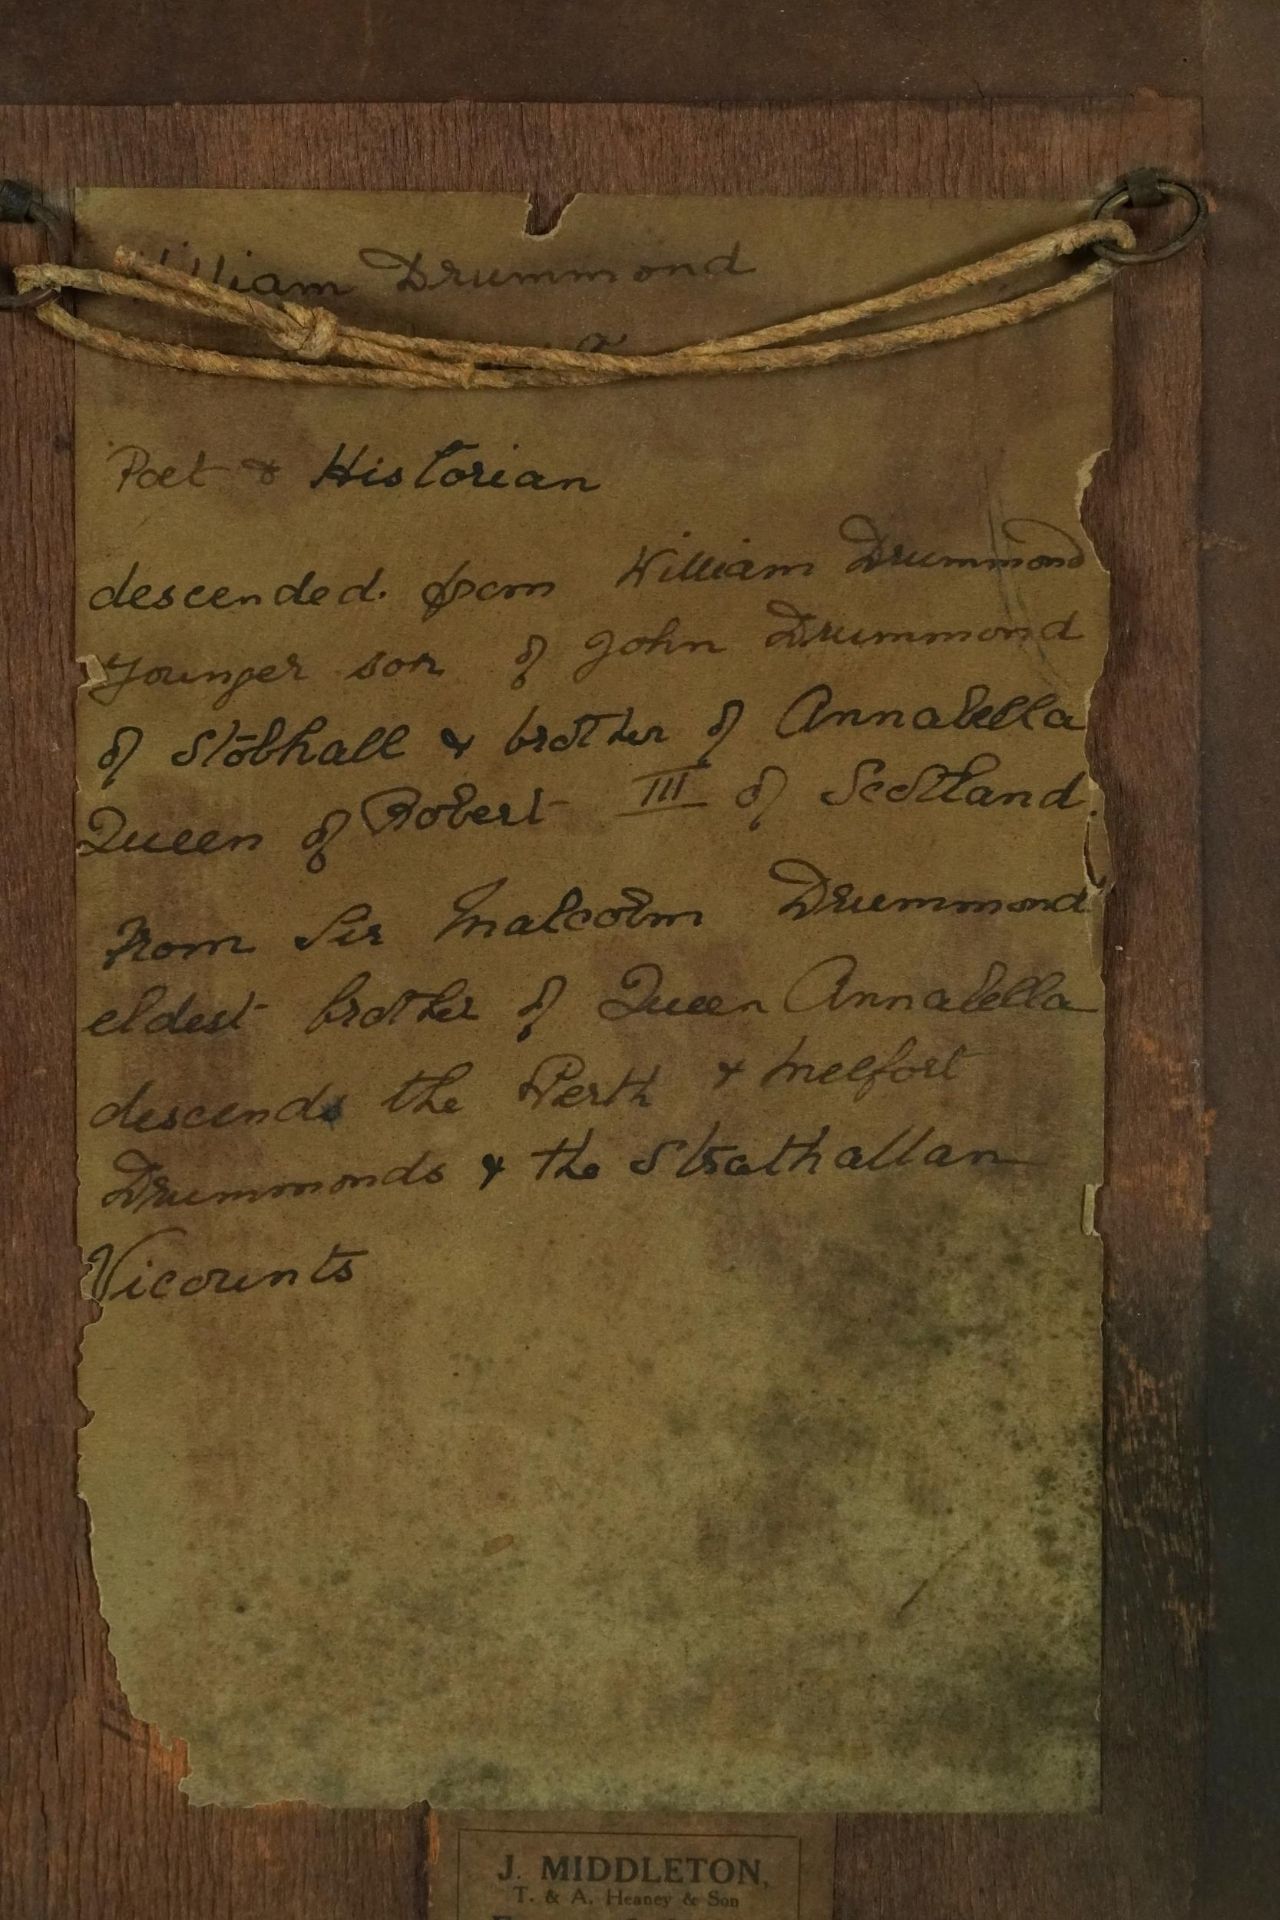 William Drummond
Poet & Historian
descended from William Drummond
Younger son of John Drummond
of Stobhall & brother of Annabella
Queen of Robert III of Scotland.
From Sir Malcolm Drummond
eldest brother of Queen Annabella
descends the Perth & Melfort
Drummonds & the Strathallan
Vicounts
J. MIDDLETON,
T. & A. Heaney & Son